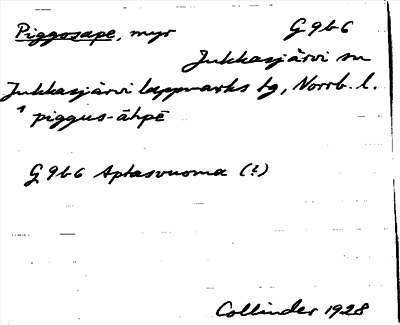 Piggosape, myr G 9 b 6
Jukkasjärvi sn
Jukkasjärvi lappmarks tg, Norrb. l.
piggus-āhpē
G 9 b 6 Aptasvuoma (?)
Collinder 1928